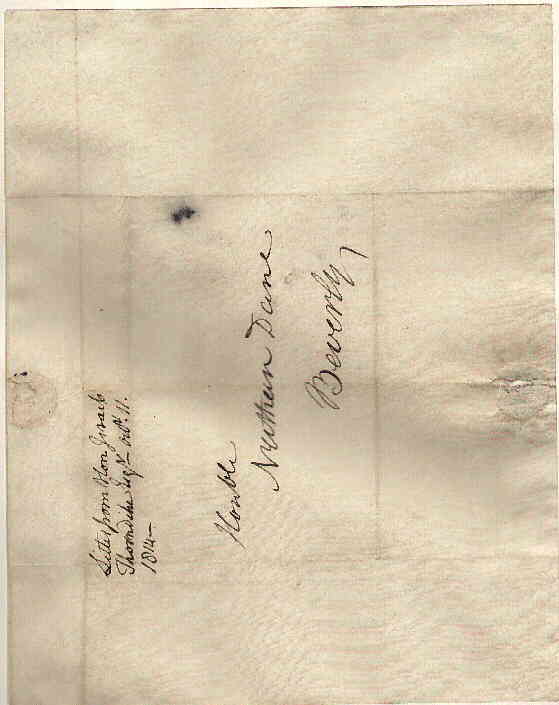 Letter from Hon Israel
Thorndike Esqr Octr. 11.
1814—
Honble
Nathan Dane
Beverly